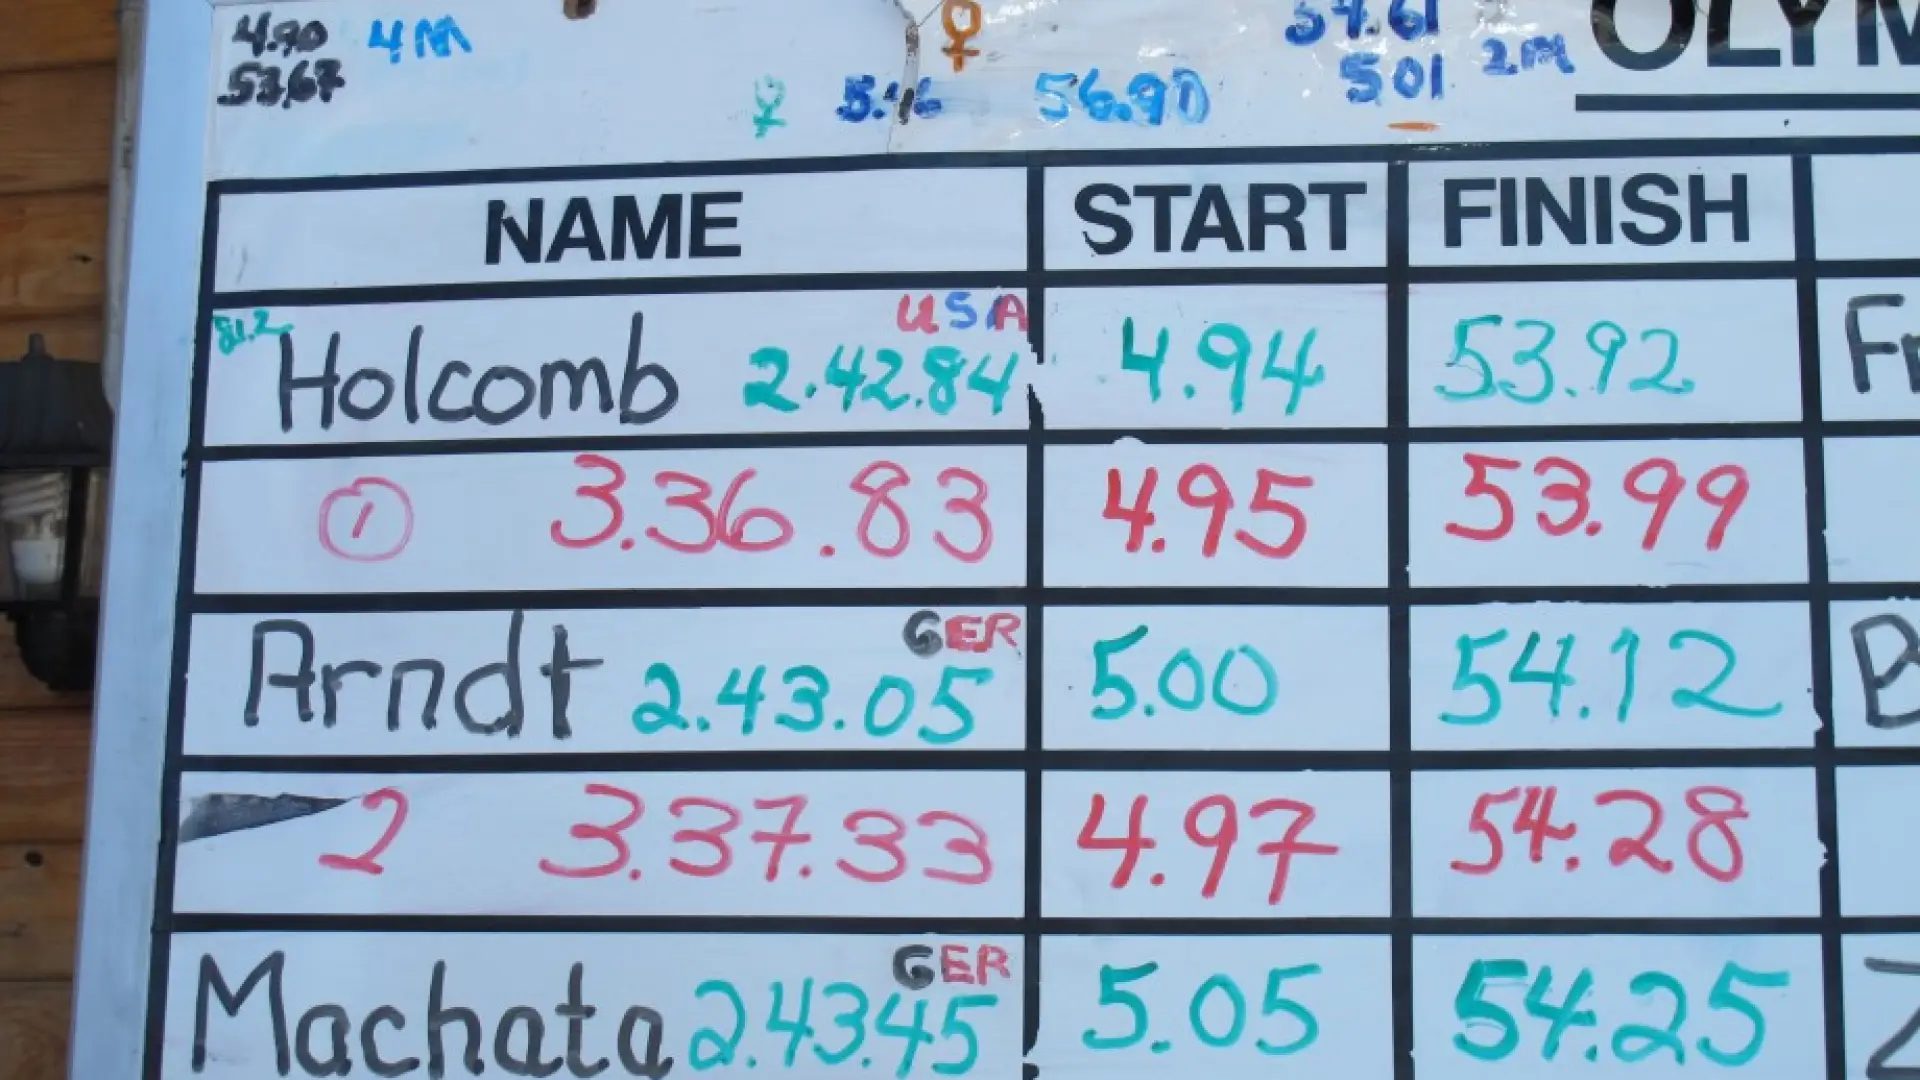 4.90 4M
53.67
♀ 5.16 ♀ 56.90
54.61
5.01 2M
OLYM
NAME START FINISH
USA
Holcomb 2.42.84 4.94 53.92 Fr
① 3.36.83 4.95 53.99
GER
Arndt 2.43.05 5.00 54.12 B
2 3.37.33 4.97 54.28
GER
Machata 2.43.45 5.05 54.25 Z